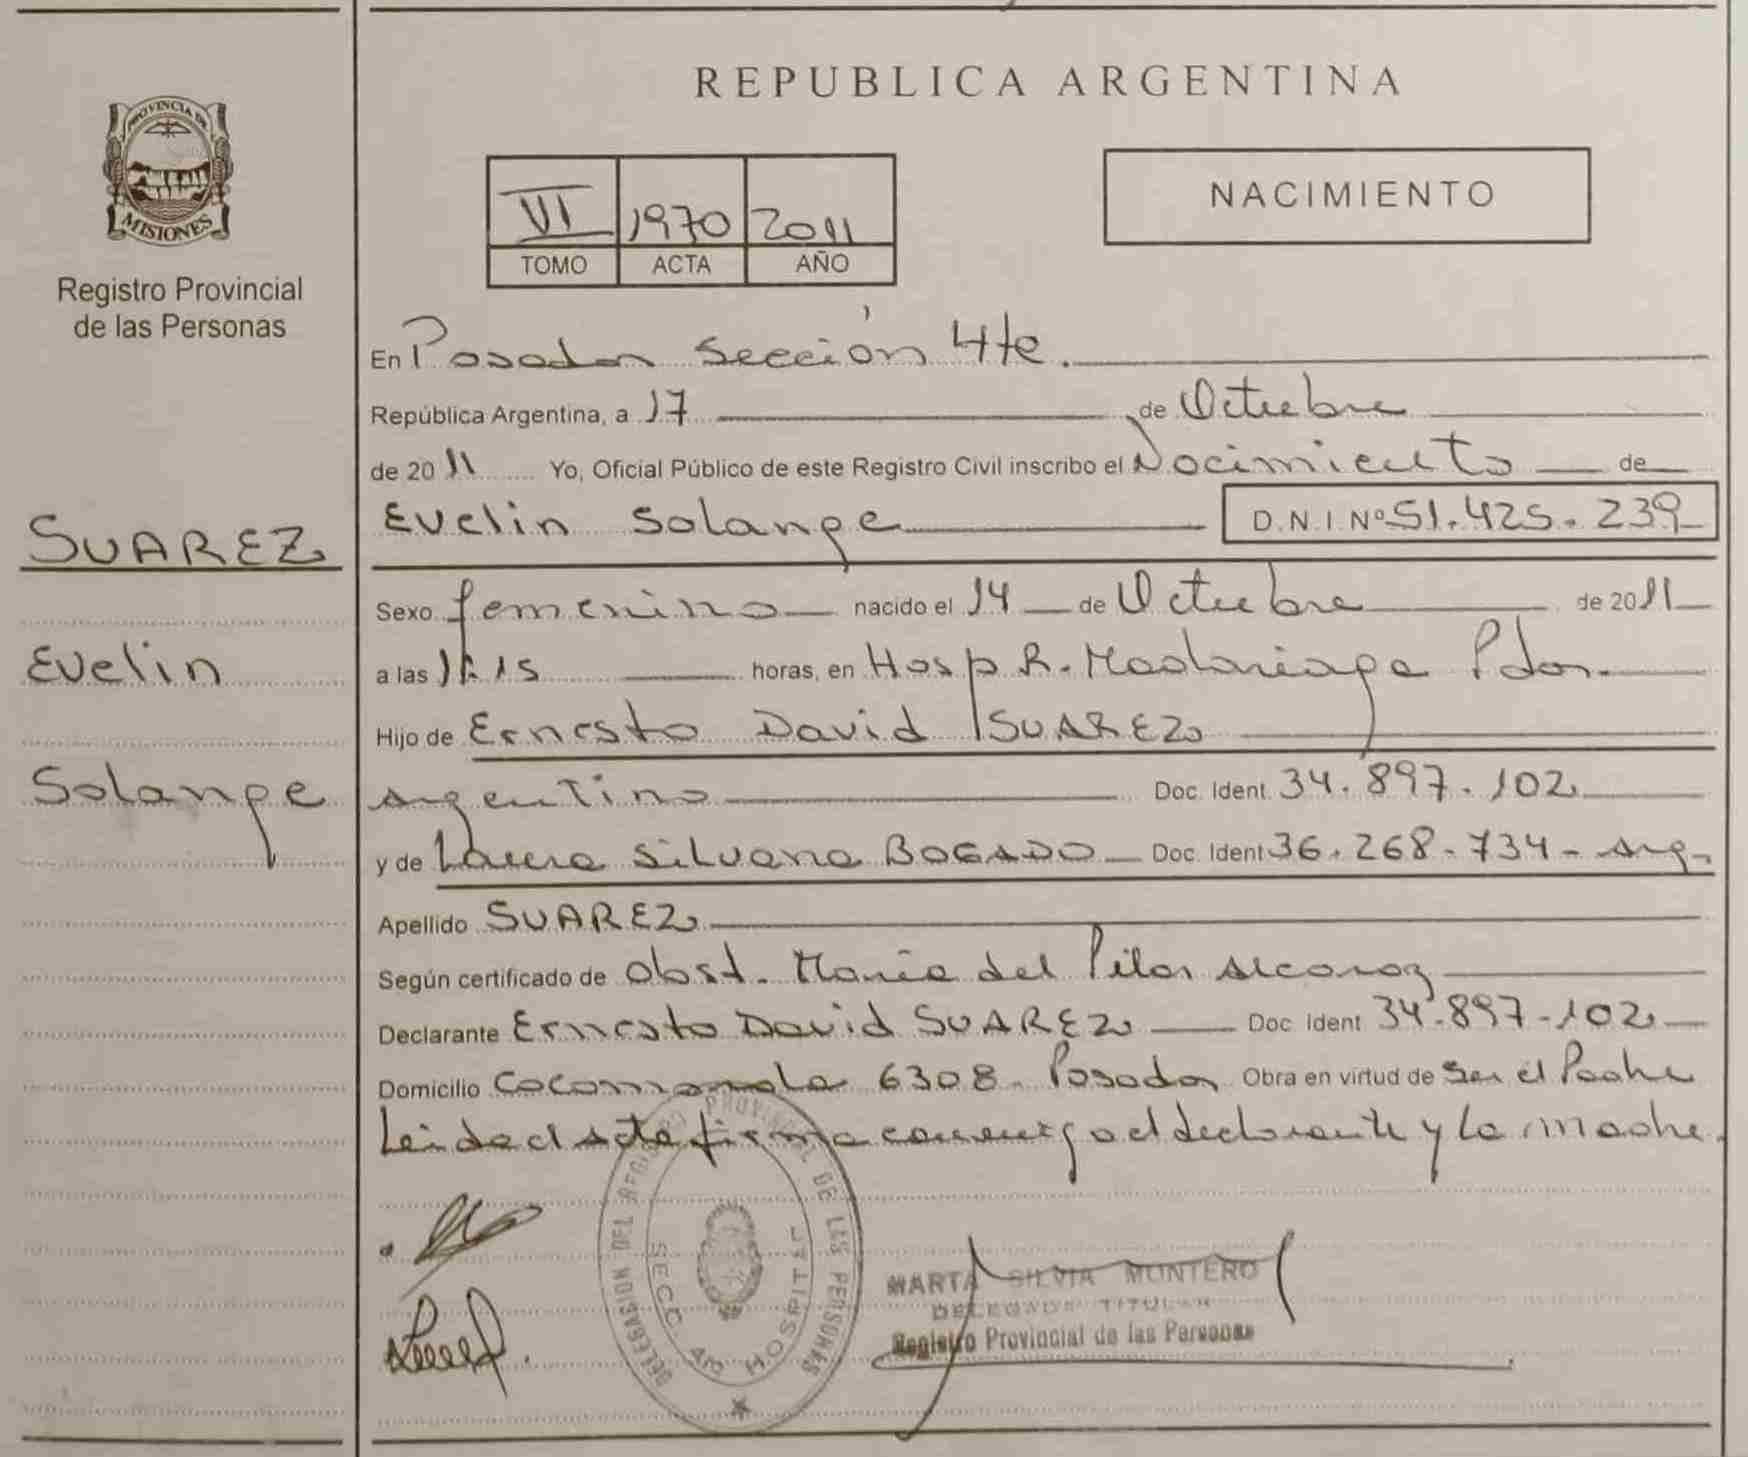 PROVINCIA DE
MISIONES
Registro Provincial
de las Personas
SUAREZ
Evelin
Solange
REPUBLICA ARGENTINA
VI 1970 2011
TOMO ACTA AÑO
NACIMIENTO
En Posadas Sección 4te.
República Argentina, a 17 de Octubre
de 2011 Yo, Oficial Público de este Registro Civil inscribo el Nacimiento de
Evelin Solange D.N.I Nº 51.425.239
Sexo femenino nacido el 14 de Octubre de 2011
a las 15 horas, en Hosp R. Madariaga Pdas.
Hijo de Ernesto David SUAREZ
Argentino Doc. Ident. 34.897.102
y de Laura Silvana BOGADO Doc. Ident 36.268.734 - Arg.
Apellido SUAREZ
Según certificado de Obst. Maria del Pilar Alcaraz
Declarante Ernesto David SUAREZ Doc Ident 34.897.102
Domicilio Cocomarola 6308 - Posadas Obra en virtud de Ser el Padre
Leida el acta firma conmigo el declarante y la madre.
DELEGACION DEL REGISTRO PROVINCIAL DE LAS PERSONAS
SECC. HOSPITAL
MARTA SILVIA MONTERO
DELEGADA TITULAR
Registro Provincial de las Personas